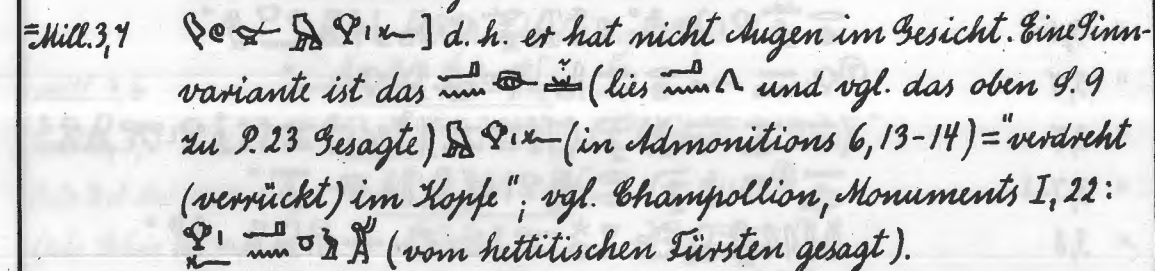 =Mill.3,4 ] d. h. er hat nicht Augen im Gesicht. Eine Sinn-
variante ist das (lies und vgl. das oben S. 9
zu P. 23 Gesagte) (in Admonitions 6,13-14) = "verdreht
(verrückt) im Kopfe"; vgl. Champollion, Monuments I, 22:
(vom hettitischen Fürsten gesagt).